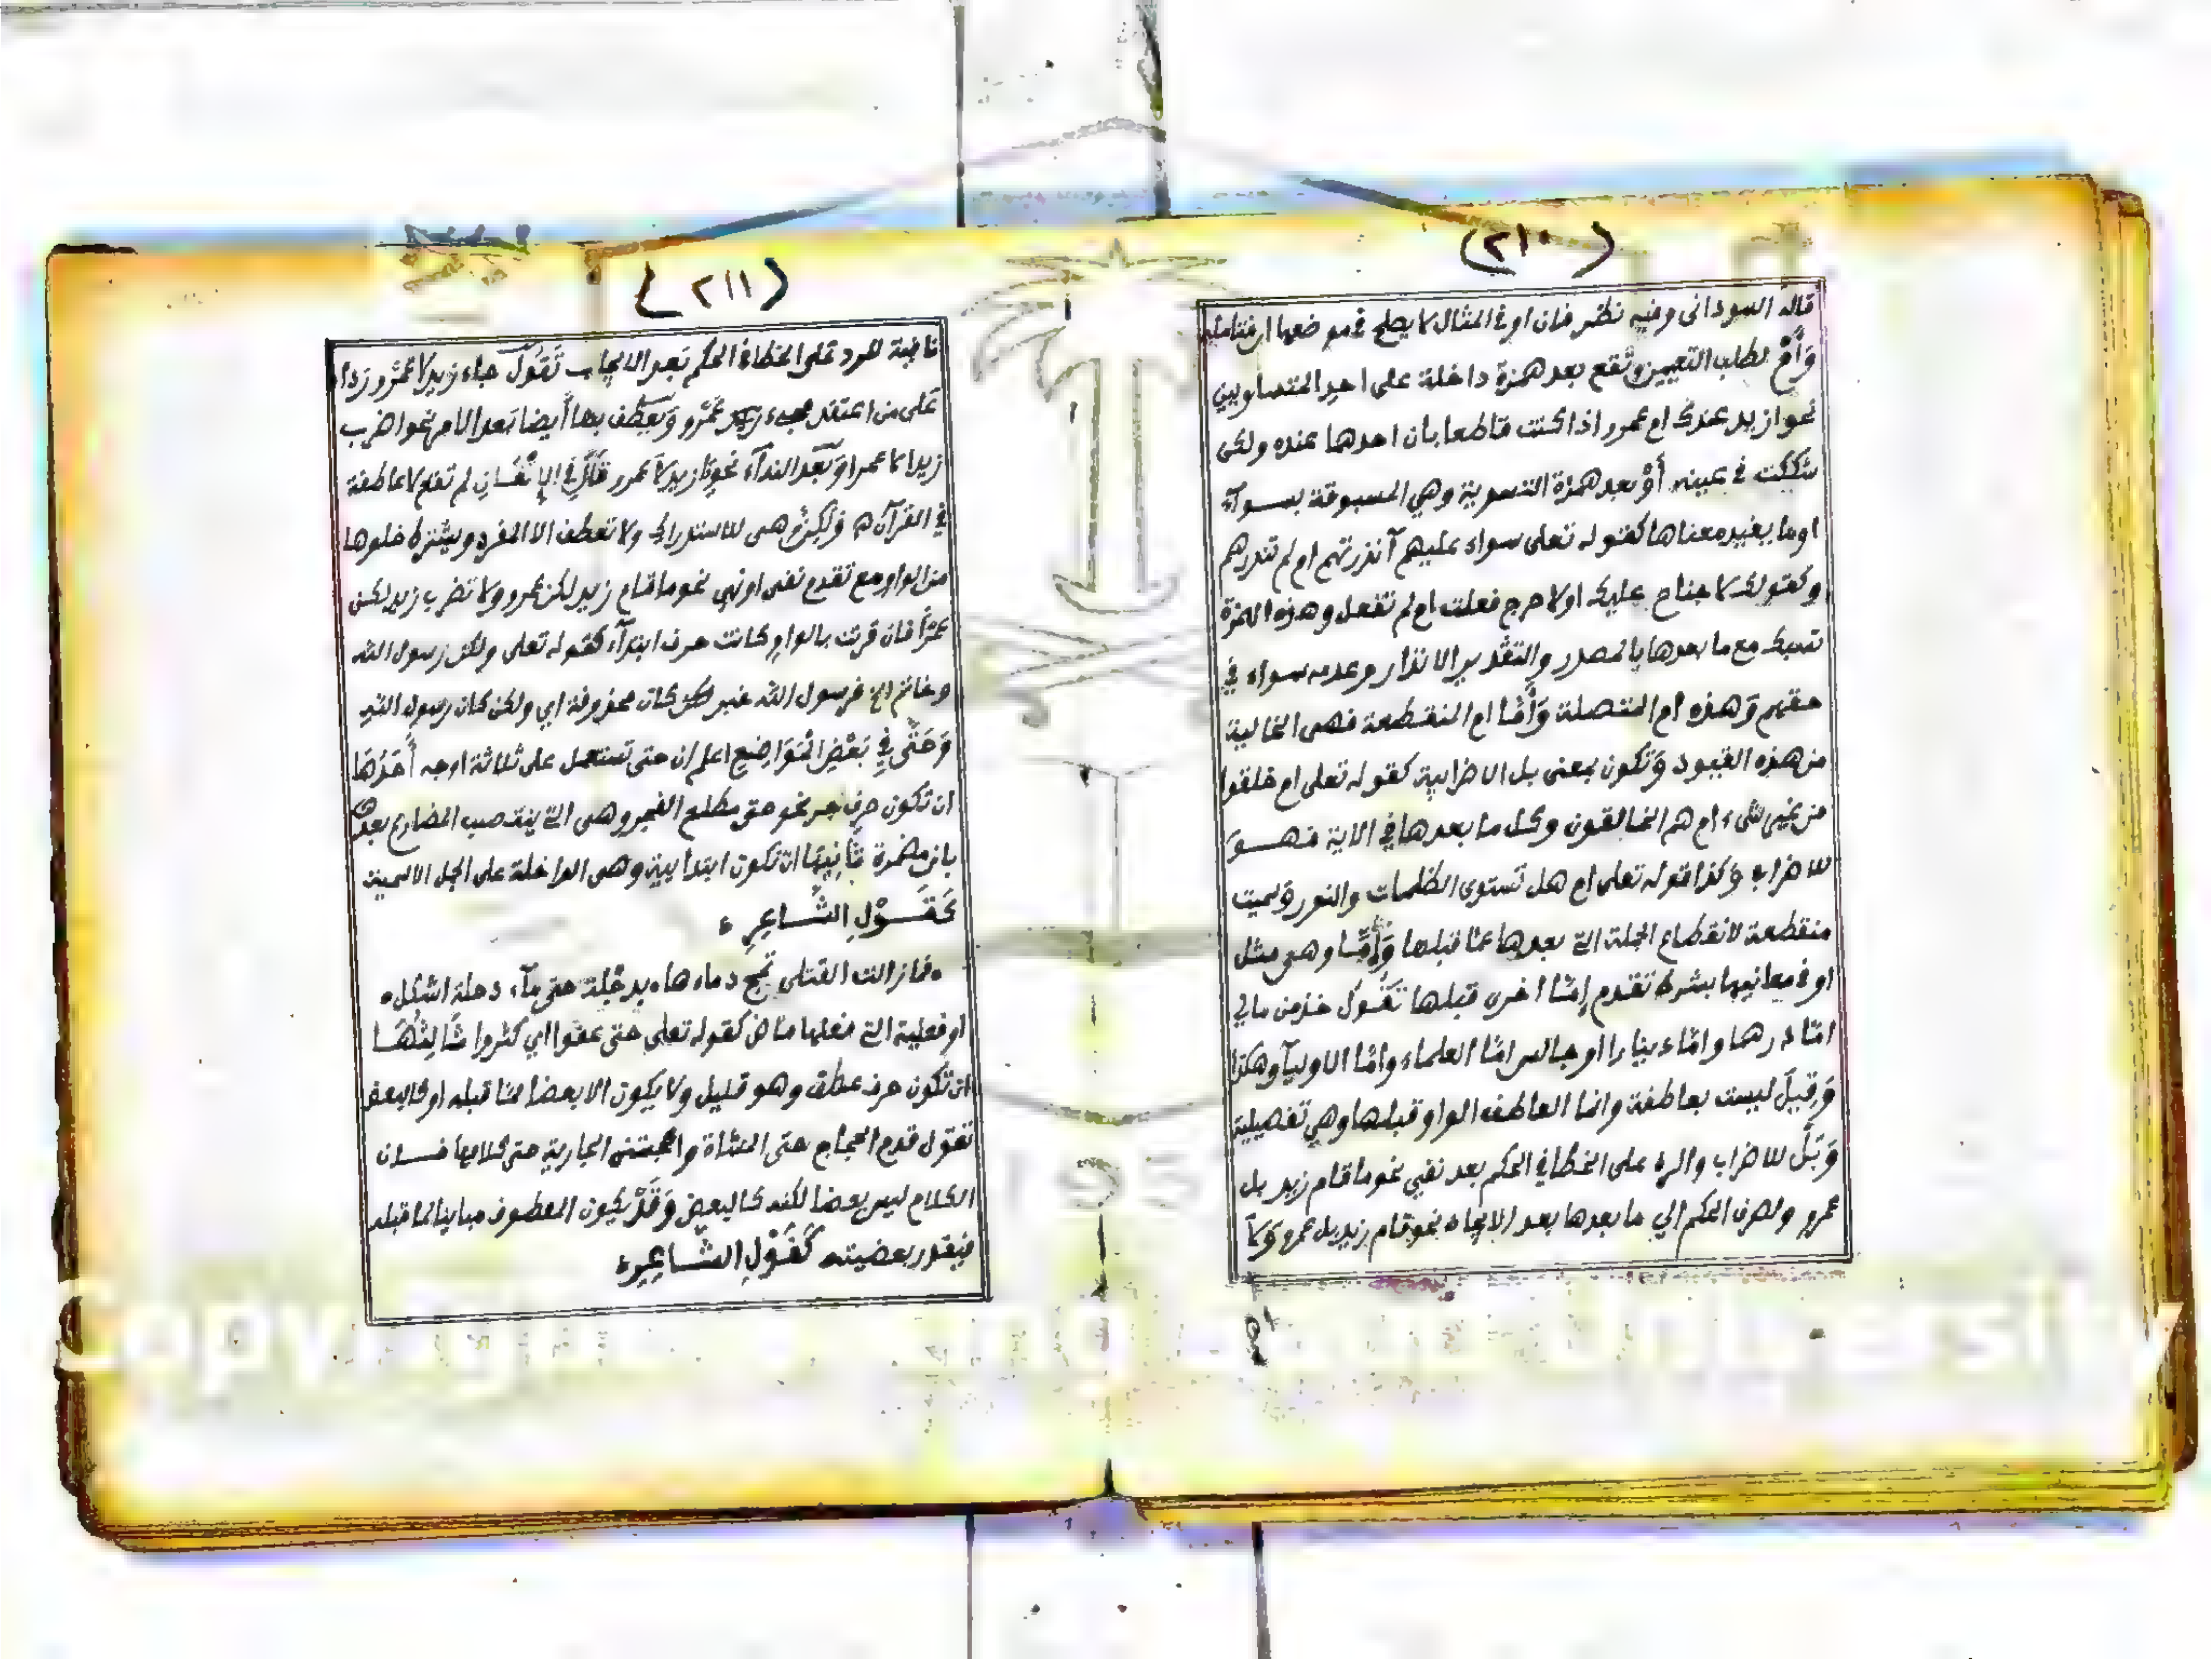 (٢١٠)
قاله السوداني وفيه نظر فان او في المثال لا يصلح في موضعها ام فتامله
وَأَمْ لطلب التعيين وتقع بعد همزة داخلة على احد المتساويين
نحو ازيد عندك ام عمرو اذا كنت قاطعا بان احدهما عنده ولكن
شككت في عينه أَوْ بعد همزة التسوية وهي المسبوقة بسوآء
او ما يفيد معناها كقوله تعلى سواء عليهم آنذرتهم ام لم تنذرهم
وكقولك لا جناح عليك اولا حرج فعلت ام لم تفعل وهذه الهمزة
تسبك مع ما بعدها بالمصدر والتقدير الانذار وعدمه سواء في
حقهم وَهذه ام المتصلة وَأَمَّا ام المنقطعة فهي الخالية
من هذه القيود وَتكون بمعنى بل الاضرابية كقوله تعلى ام خلقوا
من غير شيء ام هم الخالقون وكل ما بعدها في الاية فهو
للاضراب وَكذا قوله تعلى ام هل تستوى الظلمات والنور وَسميت
منقطعة لانقطاع الجملة التي بعدها عما قبلها وَإِمَّا وهي مثل
او في معانيها بشرط تقدم إمَّا اخرى قبلها تَقُولُ خذ من مالي
امّا درهما وامّا دينارا او جالس امّا العلماء وامّا الاوليآ وهكذا
وَقِيلَ ليست بعاطفة وانما العاطف الواو قبلها وهي تفصيلية
وَبَلْ للاضراب والرد على الخطا في الحكم بعد نفي نحو ما قام زيد بل
عمرو ولصرف الحكم الي ما بعدها بعد الايجاب نحو قام زيد بل عمرو وَلَا
(٢١١)
نافية للرد على الخطا في الحكم بَعد الايجاب تَقُولُ جاء زيد لا عَمْرو ردا
عَلى من اعتقد مجيء عَمْرو وَيعطف بها أيضا بَعد الامر نحو اضرب
زيدا لا عمرا وَبَعد الندآء نحو يا زيد لا عمرو قَالَ فِي الإِتْقَانِ لم تقع لا عاطفة
في القرآن وَلَكِنْ هي للاستدراك ولا تعطف الا المفرد ويشترط خلوها
من الواو مع تقدم نفى او نهي نحو ما قام زيد لكن عمرو ولا تضرب زيد لكن
عمرًا فان قرنت بالواو كانت حرف ابتدآء كقوله تعلى ولكن رسول الله
وخاتم الخ فرسول الله خبر لكان محذوفة اي ولكن كان رسول الله
وَحَتَّى فِي بَعْضِ الْمَوَاضِيعِ اعلم ان حتى تستعمل على ثلاثة اوجه أَحَدُهَا
ان تكون حرف جر نحو حتى مطلع الفجر وهي التي ينتصب المضارع بعدها
بان مضمرة ثَانِيهَا ان تكون ابتدايية وهي الداخلة على الجمل الاسمية
كَقَوْلِ الشَّاعِرِ
فما زالت القتلى تمج دماءها بدجلة حتى مآء دجلة اشكل
او فعلية التي فعلها ماض كقوله تعلى حتى عفوا اي كثروا ثَالِثُهَا
ان تكون حرف عطف وهو قليل ولا يكون الا بعضا مما قبله او كالبعض
تقول قدم الحجاج حتى المشاة واعجبتني الجارية حتى كلامها فان
الكلام ليس بعضا لكنه كالبعض وَقَدْ يكون المعطوف مباينا لما قبله
فيقدر بعضيته كَقَوْلِ الشَّاعِرِ
Copyright © King Saud University
195